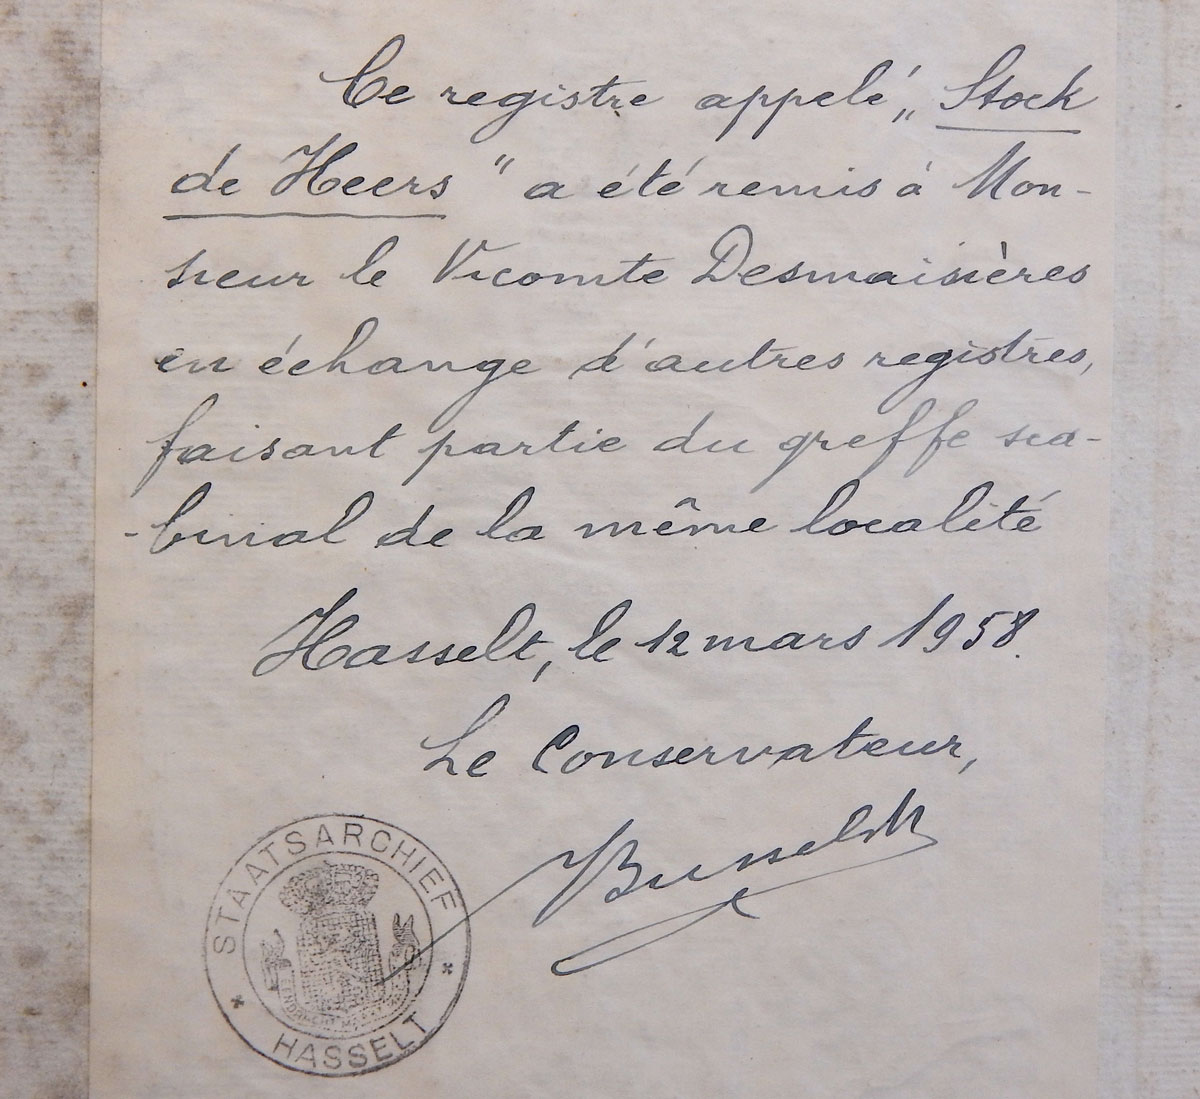 Ce registre appelé „Stock
de Heers" a été remis à Mon-
sieur le Vicomte Desmaisières
en échange d'autres registres,
faisant partie du greffe sca-
-binal de la même localité
Hasselt, le 12 mars 1958.
Le Conservateur,
STAATSARCHIEF
HASSELT